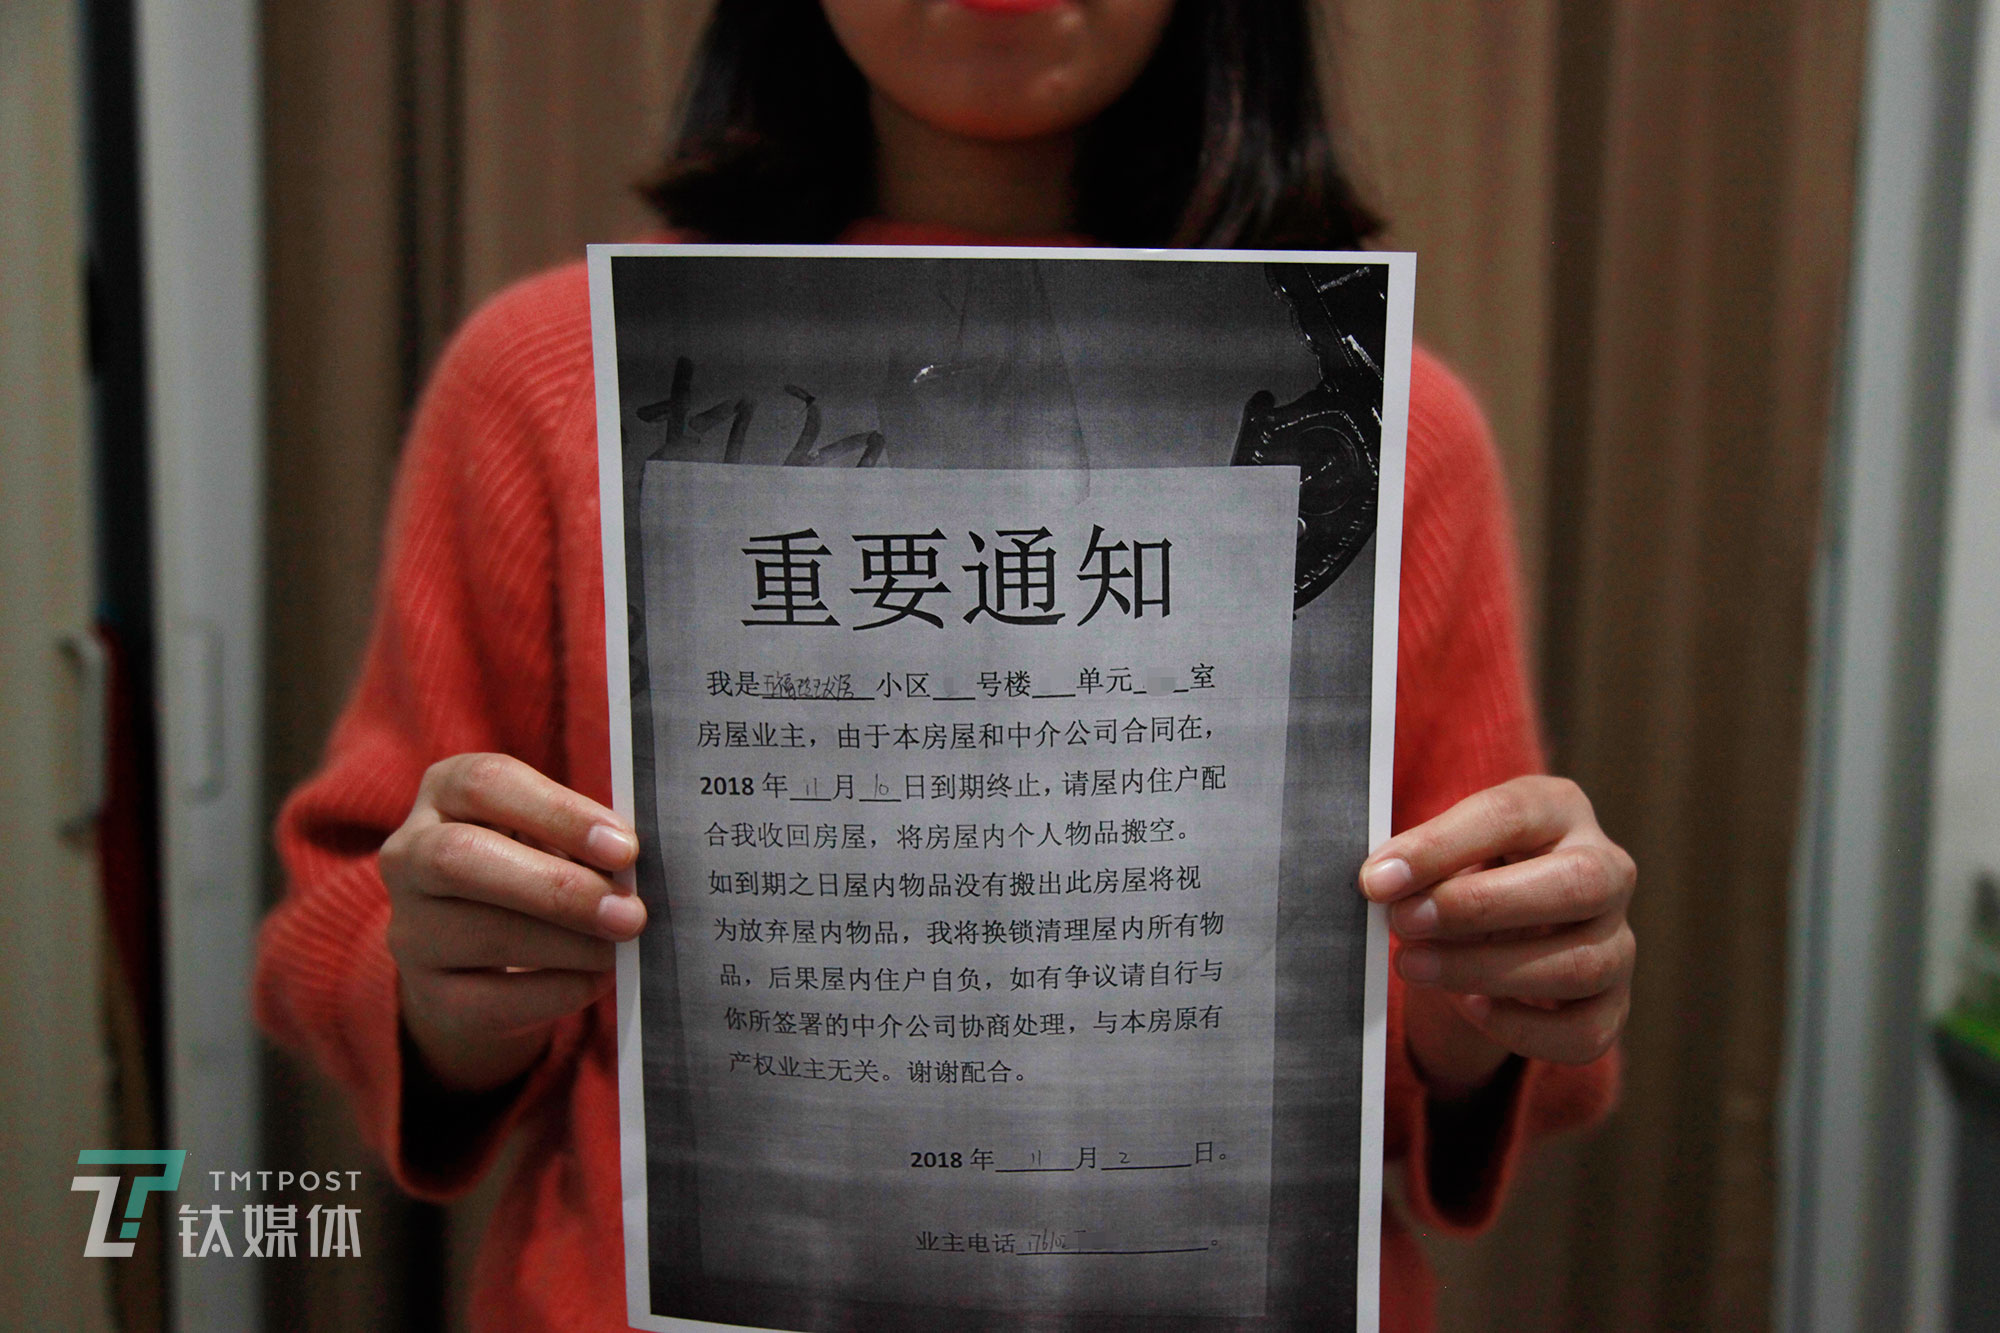 重要通知
我是五福玲珑居小区 号楼 单元 室
房屋业主，由于本房屋和中介公司合同在，
2018年11月10日到期终止，请屋内住户配
合我收回房屋，将房屋内个人物品搬空。
如到期之日屋内物品没有搬出此房屋将视
为放弃屋内物品，我将换锁清理屋内所有物
品，后果屋内住户自负，如有争议请自行与
你所签署的中介公司协商处理，与本房原有
产权业主无关。谢谢配合。
2018年11月2日。
业主电话 。
TMTPOST
钛媒体